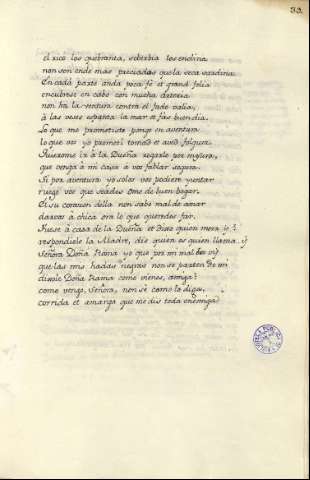 33.
el rico los quebranta, soberbia los enclina
non son ende mas preciadas que la seca sardina
En cada parte anda poca fé et grand folia
encubrese en cabo con mucha arteria
non ha la ventura contra el fado valia,
á las veses espanta la mar et fas buen dia.
Lo que me prometiste pongo en aventura
lo que vos yo prometi tomad et aved folgura,
Quierome ir á la Dueña rogarle por mesura,
que venga á mi casa á vos fablar segura.
Si por aventura yo solos vos podiere juntar
ruego vos que seades ome de buen logar.
El su corazon della non sabe mal de amar
darvos á chica ora lo que queredes far.
Fuese á casa de la Dueña et dixo quien mora y?
respondiole la Madre, dis quien es quien llama y?
Señora Doña Rama yo que por mi mal vos vi
que las mis hadas negras non se parten de mi
dixole Doña Rama como venides, amiga?
como vengo, Señora, non sé como lo diga,
corrida et amarga que me dis toda enemiga